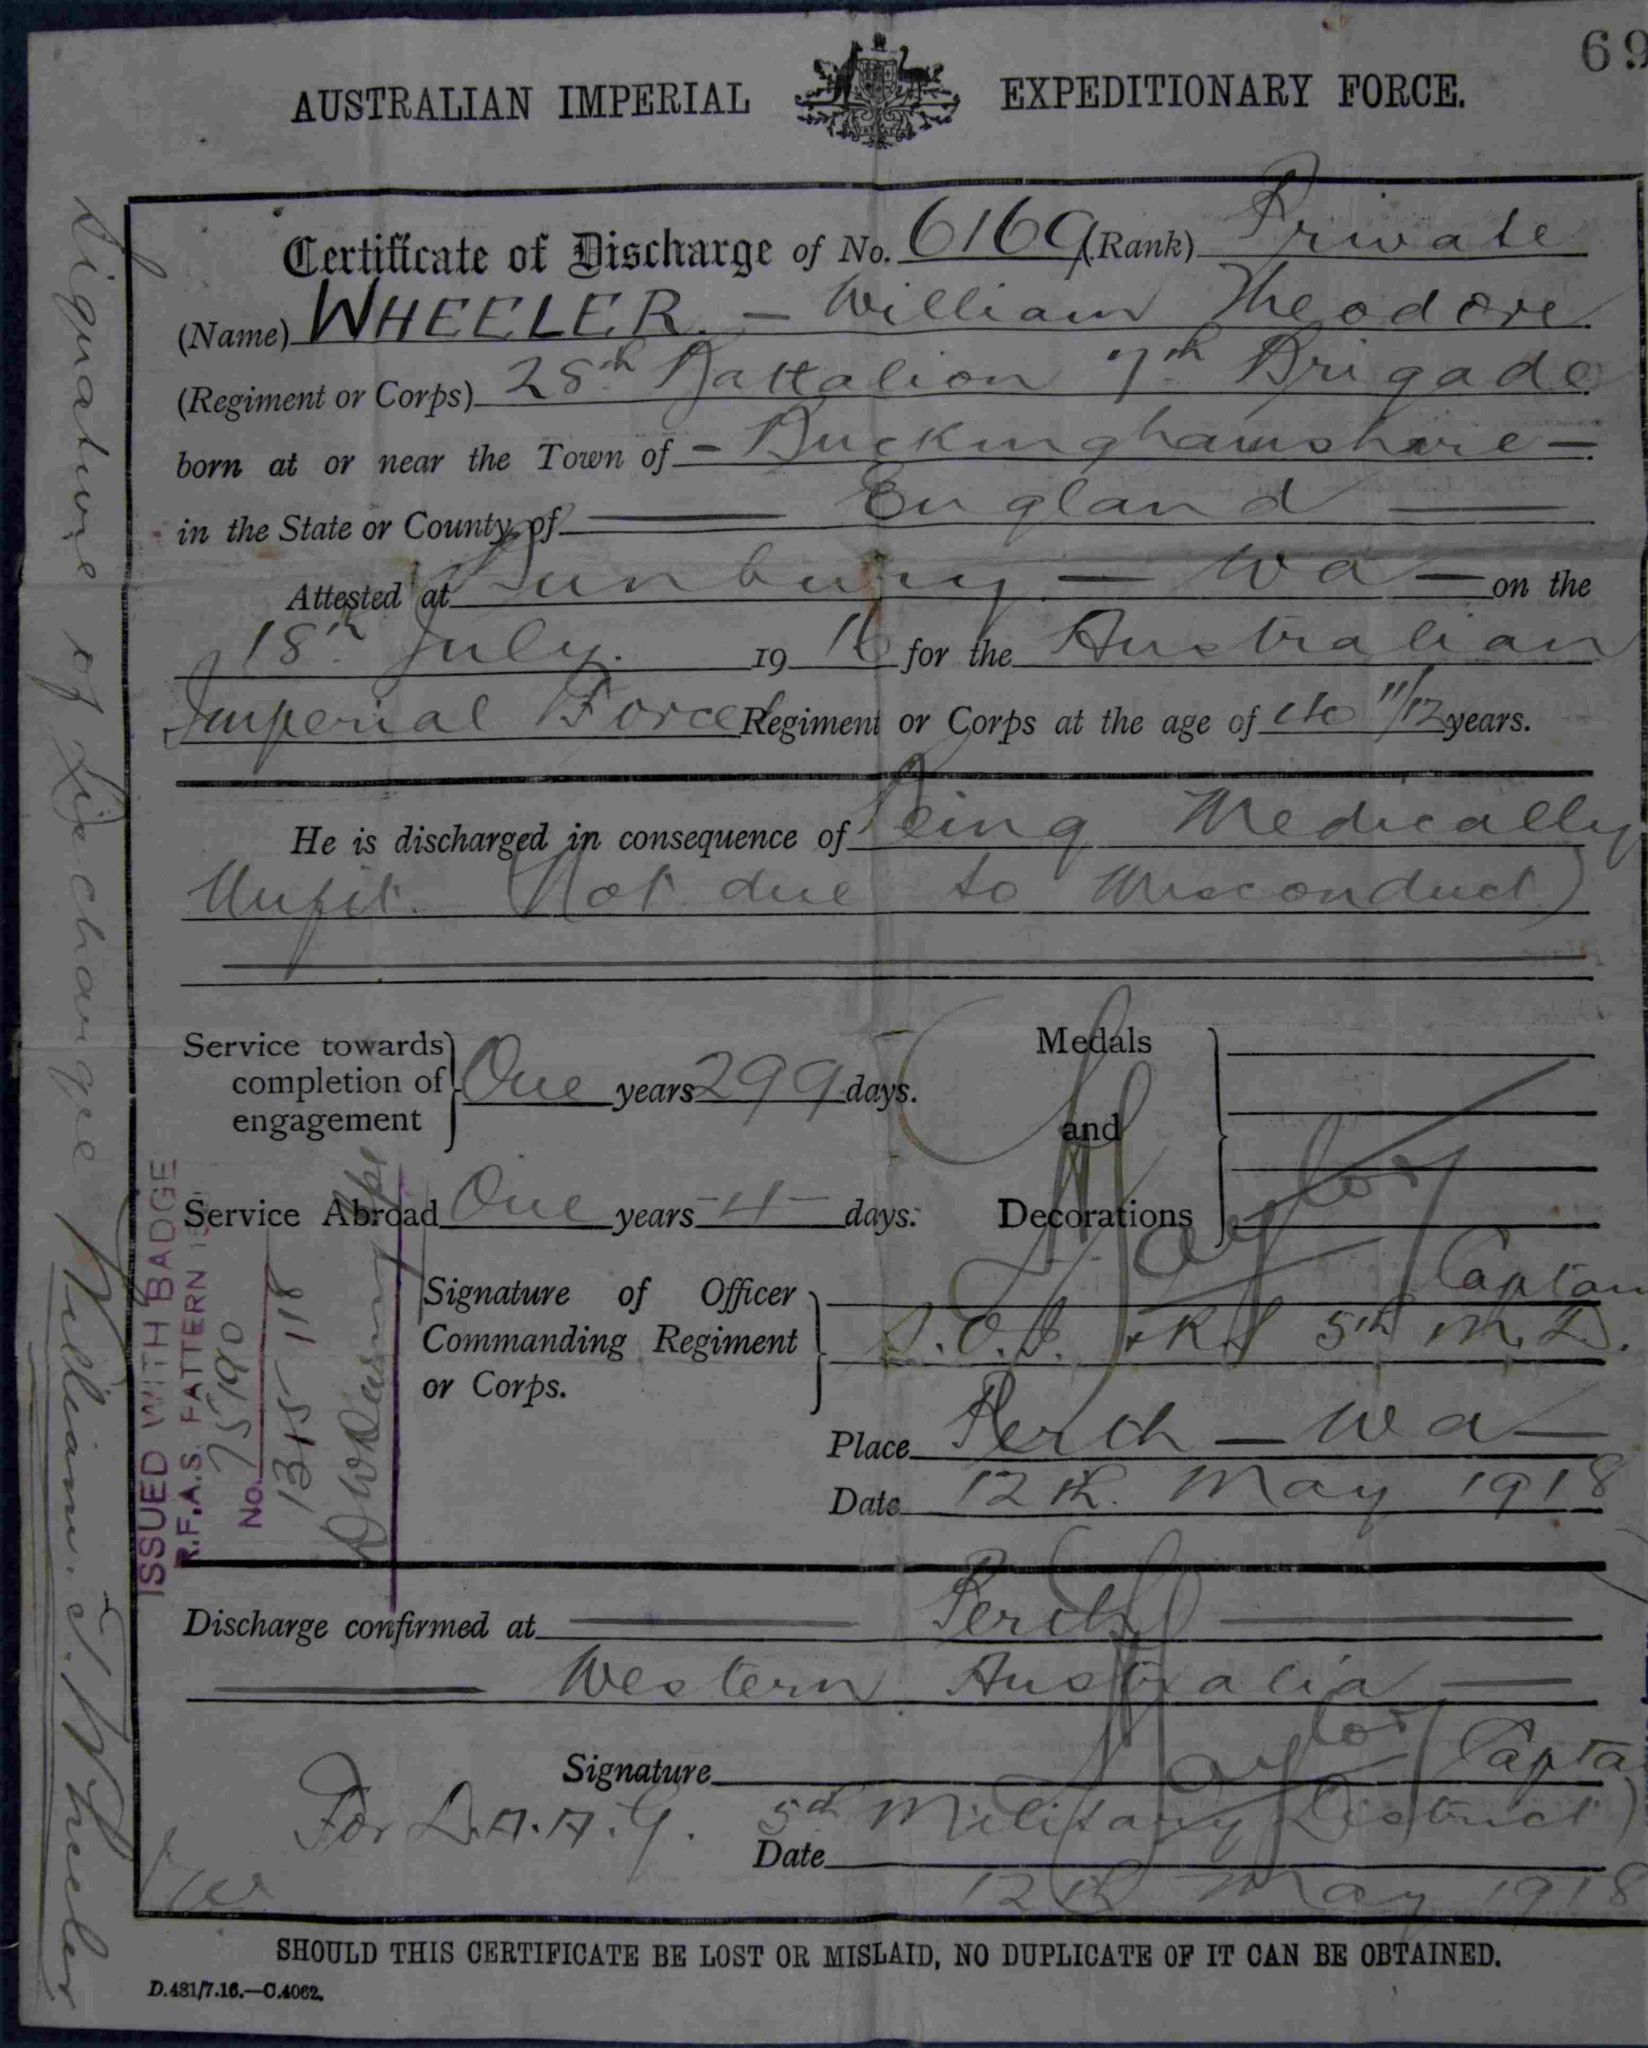 69
AUSTRALIAN IMPERIAL EXPEDITIONARY FORCE.
Certificate of Discharge of No. 6169 (Rank) Private
(Name) WHEELER. - William Theodore
(Regiment or Corps) 28th Battalion 7th Brigade
born at or near the Town of - Buckinghamshire -
in the State or County of England
Attested at Bunbury - W a - on the
18th July. 19 16 for the Australian
Imperial Force Regiment or Corps at the age of 11/12 years.
He is discharged in consequence of Being Medically
Unfit. (Not due to Misconduct)
Service towards completion of engagement } One years 299 days.
Medals and Decorations
Service Abroad One years -4- days.
Signature of Officer Commanding Regiment or Corps. } Taylor Captain
5th M.D.
Place Perth - W a -
Date 12th. May 1918
ISSUED WITH BADGE
R.F.A.S. PATTERN
No. 75190
13-5-18
Discharge confirmed at Perth
Western Australia
Signature Taylor Capta
For D.A.A.G. 5th Military District)
Date 12th May 1918
SHOULD THIS CERTIFICATE BE LOST OR MISLAID, NO DUPLICATE OF IT CAN BE OBTAINED.
D.481/7.16.—C.4062.
Signature of Dischargee William. T. Wheeler